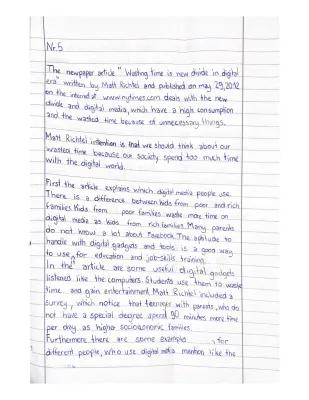 Nr.5
The newspaper article "Wasting time is new divide in digital
era" written by Matt Richtel and published on may 29,2012
on the internet at www.nytimes.com deals with the new
divide and digital media, which have a high consumption
and the wasted time because of unnecessary things.
Matt Richtel intention is that we should think about our
wasted time because our society spend too much time
with the digital world.
First the article explains which digital media people use.
There is a difference between kids from poor and rich
families. Kids from poor families waste more time on
digital media as kids from rich families. Many parents
do not know a lot about Facebook. The aptitude to
handle with digital gadgets and tools is a good way
to use for education and job-skills training.
In the article are some useful digital gadgets
listened like the computers. Students use them to waste
time and gain entertainment. Matt Richtel included a
survey, which notice that teenager with parents, who do
not have a special degree spend 90 minutes more time
per day as higher socioeconomic families.
Furthermore there are some example for
different people, who use digital media mention like the